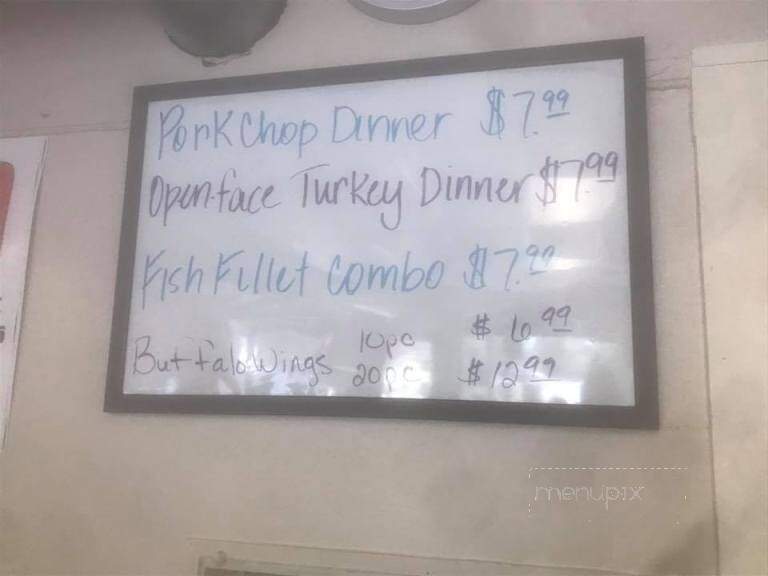 Pork Chop Dinner $7.99
Open-face Turkey Dinner $7.99
Fish Fillet Combo $7.99
Buffalo Wings 10pc $6.99
20pc $12.99
menupix